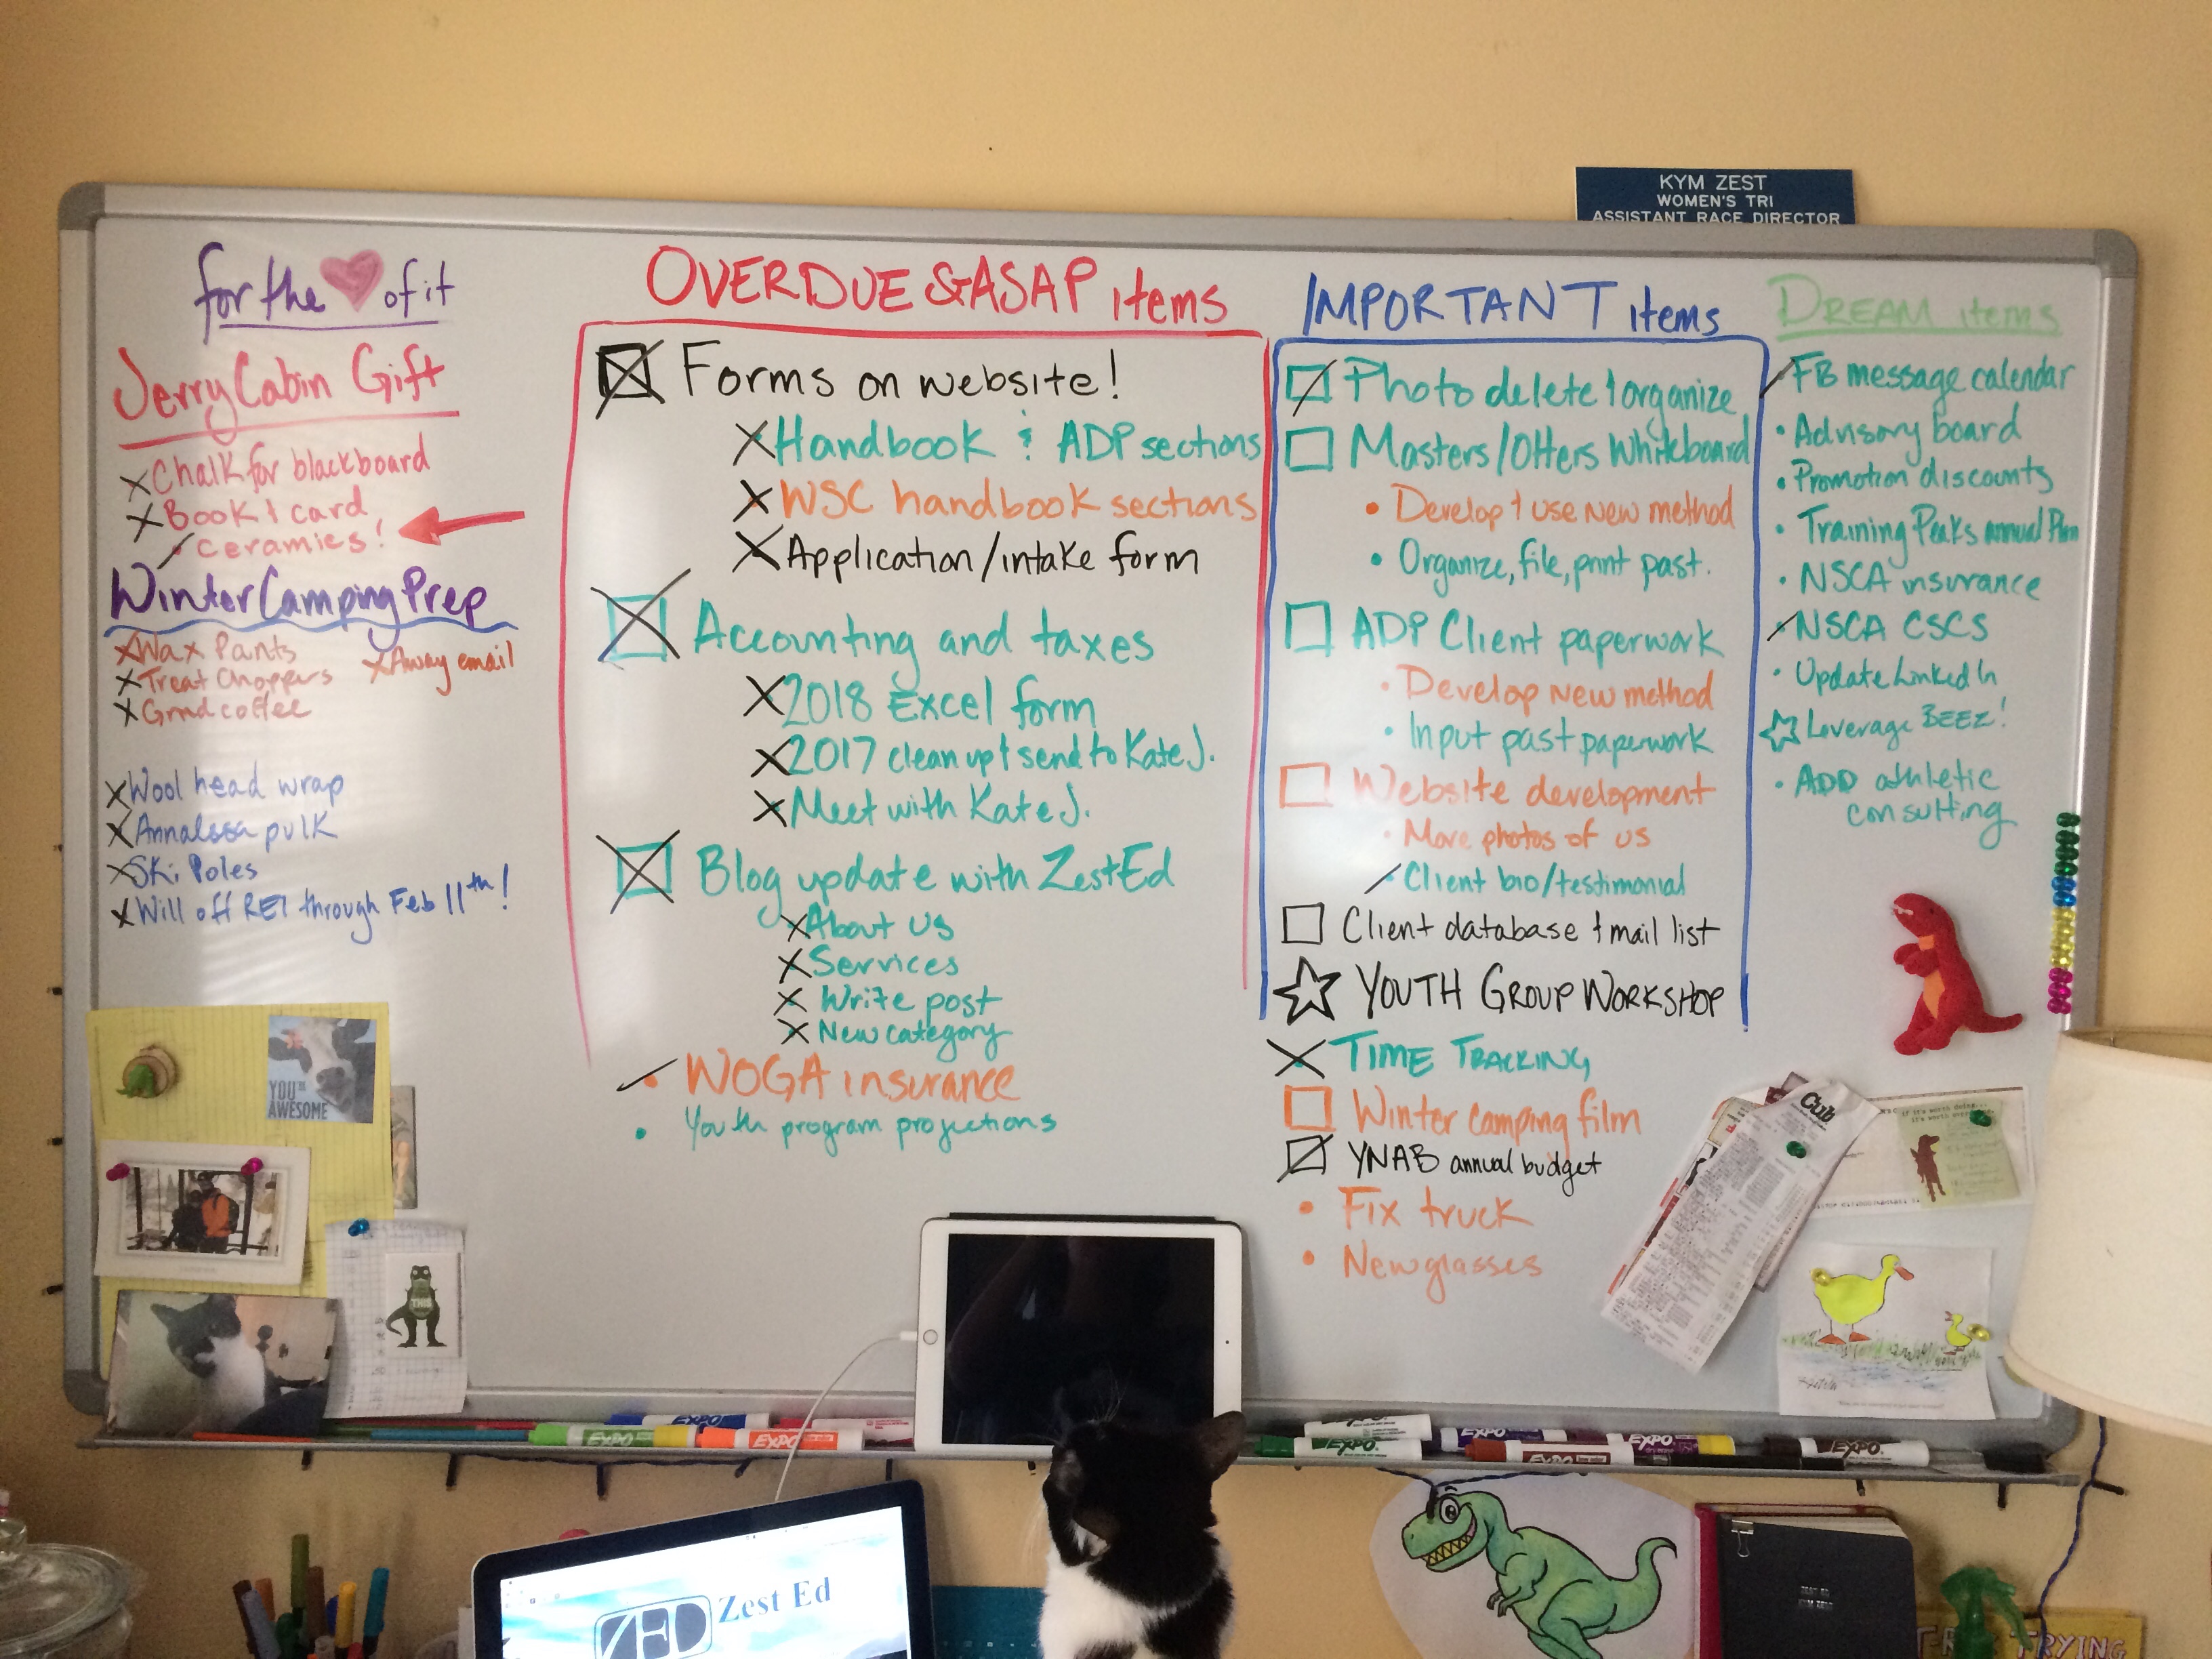 KYM ZEST
WOMEN'S TRI
ASSISTANT RACE DIRECTOR
for the of it
Jerry Cabin Gift
Chalk for blackboard
Book & card
Ceramics!
Winter Camping Prep
Wax Pants
Away email
Treat Choppers
Grnd coffee
Wool head wrap
Annalssa pulk
Ski Poles
Will off REI through Feb 11th!
OVERDUE & ASAP items
Forms on website!
Handbook & ADP sections
WSC handbook sections
Application/intake form
Accounting and taxes
2018 Excel form
2017 clean up & send to Kate J.
Meet with Kate J.
Blog update with ZestEd
About Us
Services
Write post
New category
WOGA insurance
Youth program projections
IMPORTANT items
Photo delete & organize
Masters/Otters Whiteboard
Develop & use new method
Organize, file, print past.
ADP Client paperwork
Develop new method
Input past paperwork
Website development
More photos of us
Client bio/testimonial
Client database & mail list
YOUTH GROUP WORKSHOP
TIME TRACKING
Winter camping film
YNAB annual budget
Fix truck
New glasses
DREAM items
FB message calendar
Advisory board
Promotion discounts
Training Peaks annual Plan
NSCA insurance
NSCA CSCS
Update LinkedIn
Leverage BEEZ!
ADD athletic
consulting
YOU'RE
AWESOME
THIS
Cub
If it's worth doing...
EXPO
EXPO
EXPO
EXPO
EXPO
EXPO
EXPO
EXPO
ZED
Zest Ed
ZEST ED
KYM ZEST
T-REX TRYING